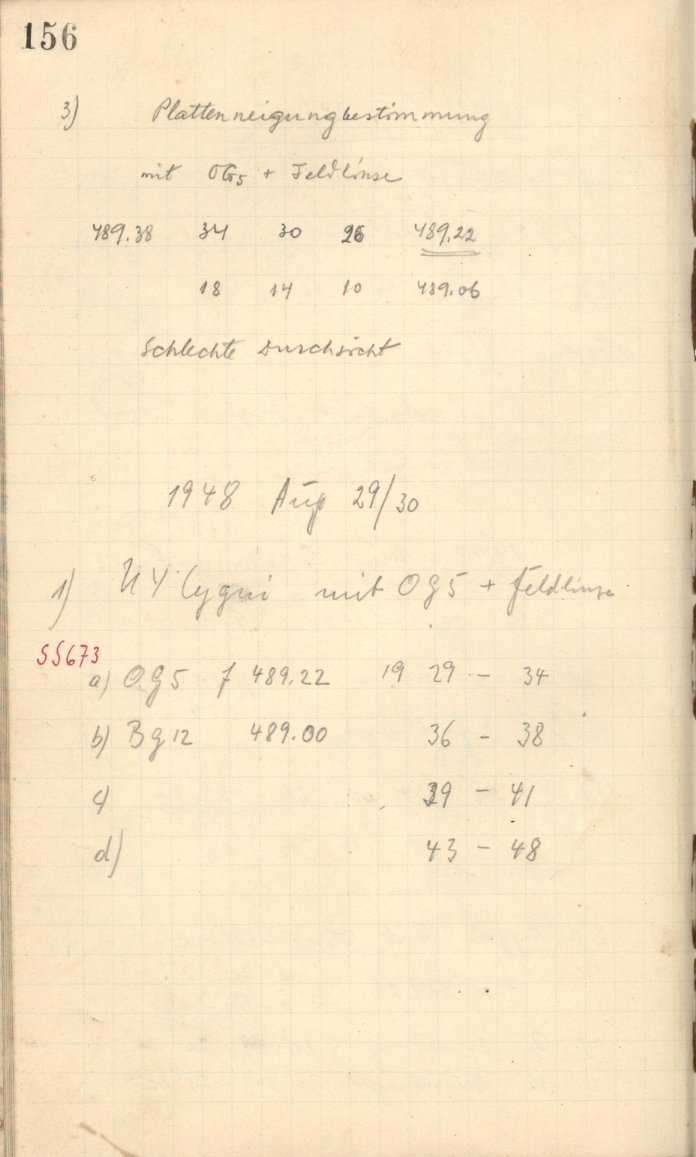 156
3) Plattenneigungbestimmung
mit OG5 + Feldlinse
489.38 34 30 26 489.22
18 14 10 489.06
Schlechte Durchsicht
1948 Aug 29/30
1) Cygni mit OG5 + Feldlinse
SS673
a) OG5 f 489.22 19 29 - 34
b) Bg12 489.00 36 - 38
c) 39 - 41
d) 43 - 48